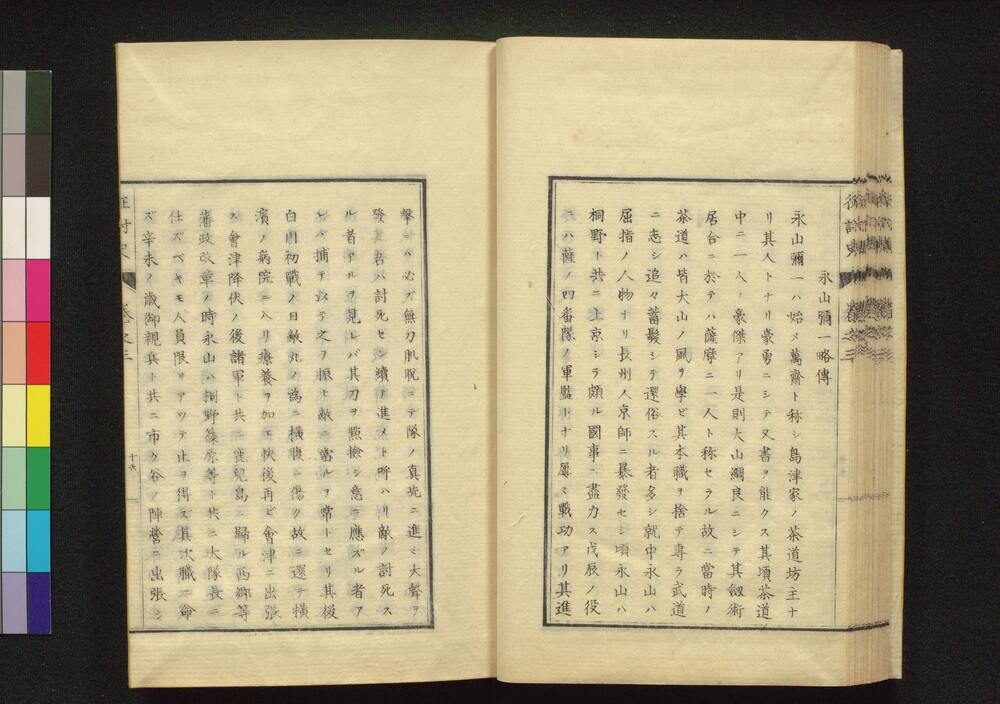 永山彌一略傳
永山彌一ハ始メ萬齋ト称シ島津家ノ茶道坊主ナ
リ其人トナリ豪勇ニシテ又書ヲ能クス其頃茶道
中ニ一人ノ豪傑アリ是則大山綱良ニシテ其劔術
居合ニ於テハ薩摩ニ一人ト称セラル故ニ當時ノ
茶道ハ皆大山ノ風ヲ學ビ其本職ヲ捨テ專ラ武道
ニ志シ追々蓄髮シテ還俗スル者多シ就中永山ハ
屈指ノ人物ナリ長州人京師ニ暴發セシ頃永山ハ
桐野ト共ニ上京シテ頗ル國事ニ盡力ス戊辰ノ役
ニハ薩ノ四番隊ノ軍監トナリ屡々戰功アリ其進
撃ニハ必ズ無刀肌脱ニテ隊ノ真先ニ進ミ大聲ヲ
發其吾ハ討死セン續テ進メト呼ハリ敵ノ討死ス
ル者アルヲ見レバ其刀ヲ㸃檢シ意ニ應ズル者ア
レバ捕テ以テ之ヲ振ヒ敵ニ當ルヲ常トセリ其後
白川初戰ノ日敵丸ノ為ニ横腹ニ傷ク故ニ還テ横
濱ノ病院ニ入リ療養ヲ加エ快後再ビ會津ニ出張
ス會津降伏ノ後諸軍ト共ニ鹿兒島ニ歸ル西郷等
藩政改革ノ時永山ハ桐野篠原等ト共ニ大隊長ニ
任ズベキモ人員限リアツテ止ヲ得ズ其次職ニ命
ズ辛未ノ歳御親兵ト共ニ市ケ谷ノ陣營ニ出張シ
卷之三
十六